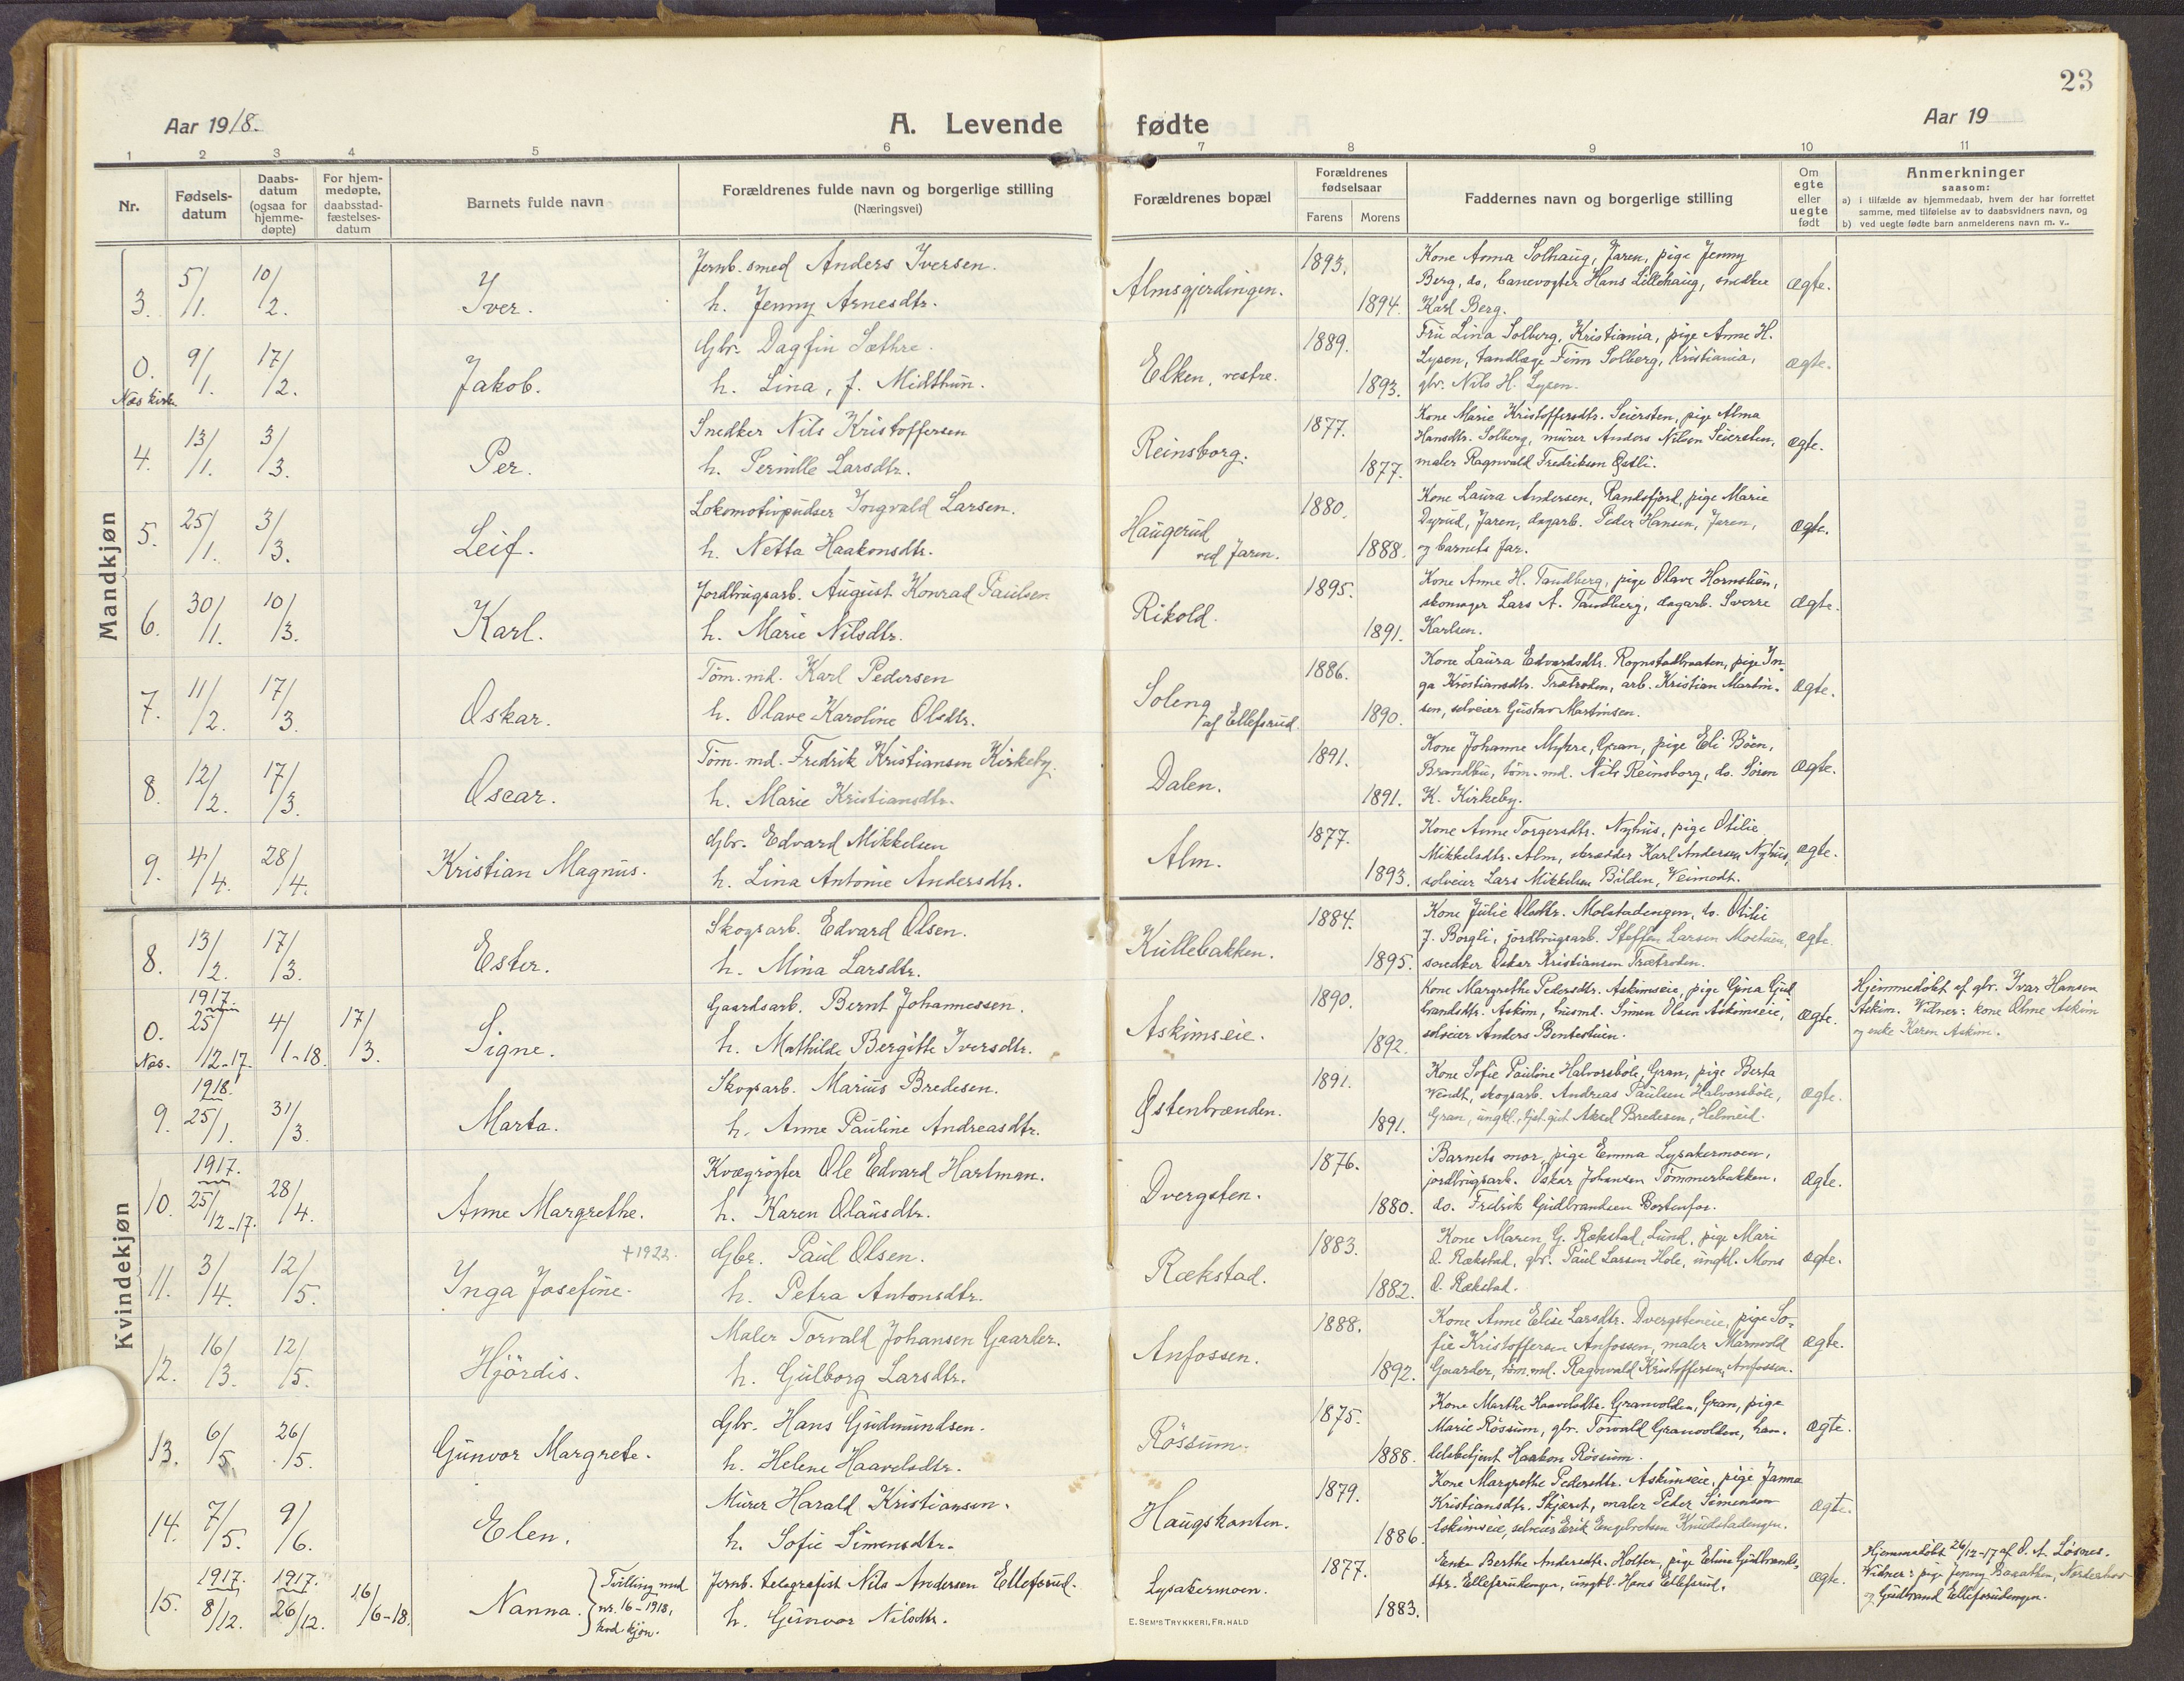 23
Aar 1918.
A. Levende fødte
Aar 19
1 2 3 4 5 6 7 8 9 10 11
Nr.
Fødsels-
datum
Daabs-
datum
(ogsaa for
hjemme-
døpte)
For hjem-
medøpte,
daabsstad-
fæstelses-
datum
Barnets fulde navn
Forældrenes fulde navn og borgerlige stilling
(Næringsvei)
Forældrenes bopæl
Forældrenes
fødselsaar
Farens Morens
Faddernes navn og borgerlige stilling
Om
egte
eller
uegte
født
Anmerkninger
saasom:
a) i tilfælde av hjemmedaab, hvem der har forrettet
samme, med tilføielse av to daabsvidners navn, og
b) ved uegte fødte barn anmelderens navn m. v..
Mandkjøn
3. 5/1. 10/2. Iver.
Jernb. smed Anders Iversen.
h. Jenny Arnesdtr.
Almsgjerdingen. 1893. 1894.
Kone Anna Solhaug, Jaren, pige Jenny
Berg, do, banevogter Hans Lillehaug, snedker
Karl Berg.
ægte.
0. Næs kirke 9/1. 17/2. Jakob.
Gbr. Dagfin Sæthre.
h. Lina, f. Midthun.
Elken, vestre. 1889. 1893.
Fru Lina Solberg, Kristiania, pige Anne H.
Lysen, tandlæge Finn Solberg, Kristiania,
gbr. Nils H. Lysen.
ægte.
4. 13/1. 3/3. Per.
Snedker Nils Kristoffersen
h. Pernille Larsdtr.
Reinsborg. 1877. 1877.
Kone Marie Kristoffersdtr. Seiersten, pige Alma
Hansdtr. Solberg, murer Anders Nilsen Seiersten,
maler Ragnvald Fredriksen Østli.
ægte.
5. 25/1. 3/3. Leif.
Lokomotivpudser Ingvald Larsen.
h. Netta Haakonsdtr.
Haugerud
ved Jaren. 1880. 1888.
Kone Laura Andersen, Randsfjord, pige Marie
Dyrud, Jaren, dagarb. Peder Hansen, Jaren,
og barnets far.
ægte.
6. 30/1. 10/3. Karl.
Jordbrugsarb. August Konrad Paulsen
h. Marie Nilsdtr.
Rikold. 1895. 1891.
Kone Anne H. Tandberg, pige Olave Hornslien,
skomager Lars A. Tandberg, dagarb. Sverre
Karlsen.
ægte.
7. 11/2. 17/3. Oskar.
Tøm. md. Karl Pedersen
h. Olave Karoline Olsdtr.
Soleng
af Ellefsrud 1886. 1890.
Kone Laura Edvardsdtr. Rognstadbraaten, pige In-
ga Kristiansdtr. Trætroden, arb. Kristian Martin-
sen, selveier Gustav Martinsen.
ægte.
8. 12/2. 17/3. Oscar.
Tøm. md. Fredrik Kristiansen Kirkeby.
h. Marie Kristiansdtr.
Dalen. 1891. 1891.
Kone Johanne Myhre, Gran, pige Eli Bøen,
Brandbu, tøm. md. Nils Reinsborg, do. Søren
K. Kirkeby.
ægte.
9. 4/4. 28/4. Kristian Magnus.
Gbr. Edvard Mikkelsen
h. Lina Antonie Andersdtr.
Alm. 1877. 1893.
Kone Anne Torgersdtr. Nyhus, pige Otilie
Mikkelsdtr. Alm, skrædder Karl Andersen Nyhus,
selveier Lars Mikkelsen Bilden, Veimodt.
ægte.
Kvindekjøn
8. 13/2. 17/3. Ester.
Skogsarb. Edvard Olsen.
h. Mina Larsdtr.
Kullebakken. 1884. 1895.
Kone Julie Olsdtr. Molstadengen, do. Otilie
J. Borgli, jordbrugsarb. Steffen Larsen Moetuen,
snedker Oskar Kristiansen Trætroden.
ægte.
0. Næs. 1917. 25/12-17. 4/1-18. 17/3. Signe.
Gaardsarb. Bernt Johannessen.
h. Mathilde Bergitte Iversdtr.
Askimseie. 1890. 1892.
Kone Margrethe Pedersdtr. Askimseie, pige Gina Gud
brandsdtr. Askim, husmd. Simen Olsen Askimseie,
selveier Anders Bentestuen.
ægte.
Hjemmedøbt af gbr. Ivar Hansen
Askim. Vidner: kone Olme Askim
og enke Karen Askim.
9. 1918. 25/1. 31/3. Marta.
Skogsarb. Marius Bredesen.
h. Anne Pauline Andreasdtr.
Østenbrænden. 1891. 1891.
Kone Sofie Pauline Halvorsbøle, Gran, pige Berta
Wendt, skogsarb. Andreas Paulsen Halvorsbøle,
Gran, ungkl., tjst. gut Aksel Bredesen, Helmeid.
ægte.
10. 1917. 25/12-17. 28/4. Anne Margrethe.
Kvægrøgter Ole Edvard Hartman.
h. Karen Olausdtr.
Dvergsten. 1876. 1880.
Barnets mor, pige Emma Lysakermoen,
jordbrugsarb. Oskar Johansen Tømmerbakken,
do. Fredrik Gudbrandsen
ægte.
11. 3/4. 12/5. Inga Josefine. +1922.
Gbr. Paul Olsen.
h. Petra Antonsdtr.
Rækstad. 1883. 1882.
Kone Maren G. Rækstad, Lund, pige Mari
O. Rækstad, gbr. Paul Larsen Hole, ungkl. Mons
O. Rækstad.
ægte.
12. 16/3. 12/5. Hjørdis.
Maler Torvald Johansen Gaarder.
h. Gulborg Larsdtr.
Anfossen. 1888. 1892.
Kone Anne Elise Larsdtr. Dvergsteneie, pige So-
fie Kristoffersen Anfossen, maler Marmold
Gaarder, tøm. md. Ragnvald Kristoffersen, Anfossen.
ægte.
13. 6/5. 26/5. Gunvor Margrete.
Gbr. Hans Gudmundsen.
h. Helene Haavelsdtr.
Røssum. 1875. 1888.
Kone Marthe Haavelsdtr. Granvolden, Gran, pige
Marie Røssum, gbr. Torvald Granvolden, han-
delsbetjent Haakon Røssum.
ægte.
14. 7/5. 9/6. Elen.
Murer Harald Kristiansen.
h. Sofie Simensdtr.
Haugskanten. 1879. 1886.
Kone Margrethe Pedersdtr. Askimseie, pige Janna
Kristiansdtr. Skjæret, maler Peder Simensen
Askimseie, selveier Erik Engebretsen Knudstadengen.
ægte.
15. 1917. 8/12. 1917. 26/12. 16/6-18. Nanna.
Tvilling med
nr. 16-1918,
kvd. kjøn.
Jernb. telegrafist Nils Andersen Ellefsrud.
h. Gunvor Nilsdtr.
Lysakermoen. 1877. 1883.
Enke Berthe Andersdtr. Holter, pige Eline Gudbrands-
dtr. Ellefsrudengen, ungkl. Hans Ellefsrud.
ægte.
Hjemmedøbt 26/12-17 af O. A. Løsnes.
Vidner: pige Jenny Norderhov
og Gudbrand Ellefsrudengen.
E. SEM'S TRYKKERI, FR.HALD